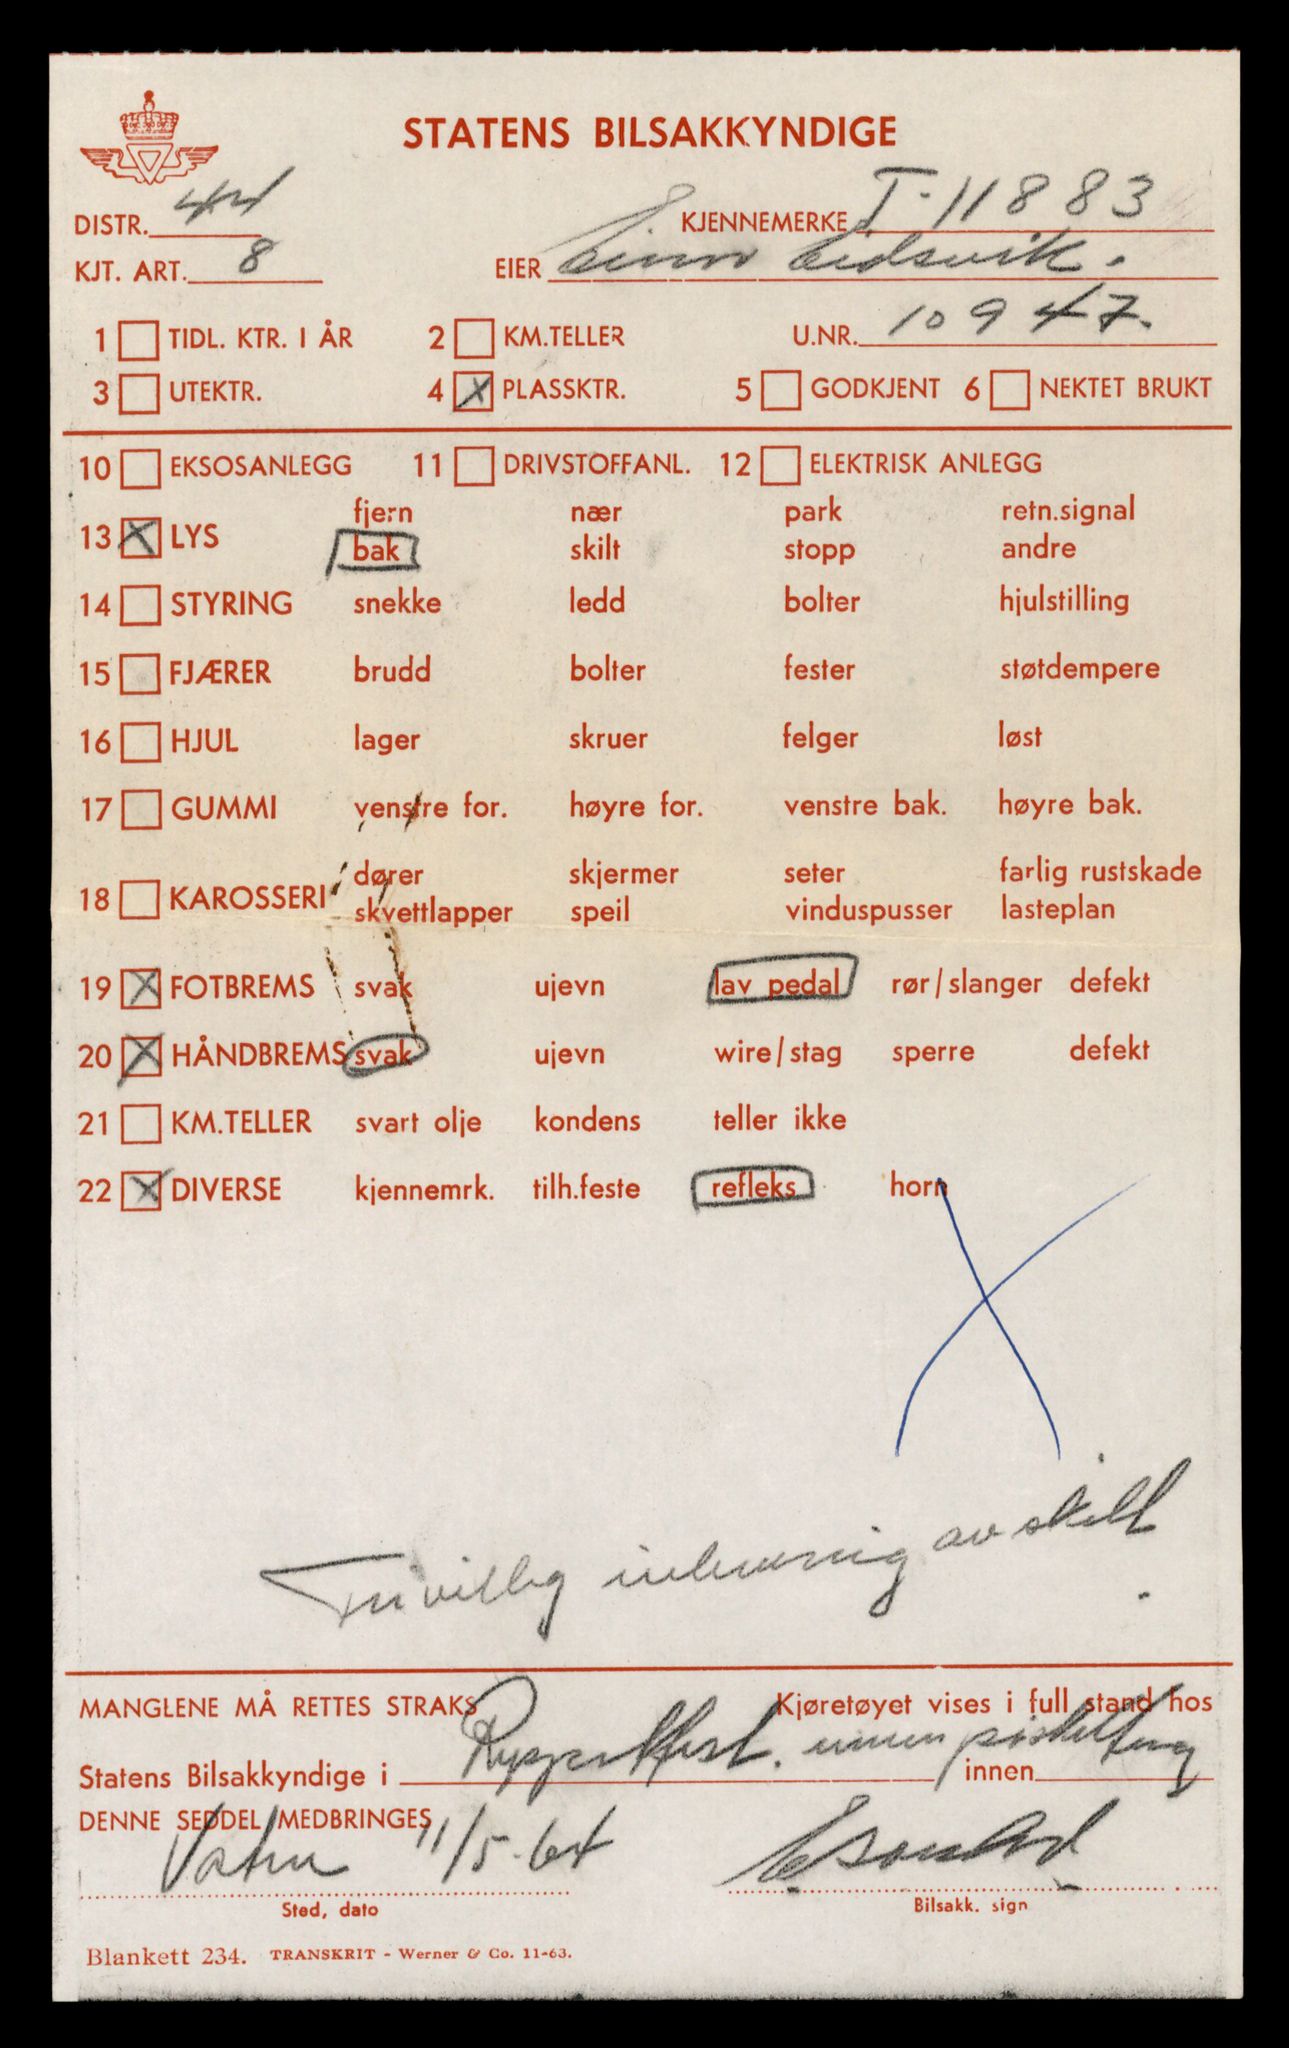 STATENS BILSAKKYNDIGE
DISTR. 44
KJENNEMERKE T-11883
KJT. ART. 8
EIER Einar Eidsvik.
1 TIDL. KTR. I ÅR 2 KM.TELLER U.NR. 10947.
3 UTEKTR. 4 X PLASSKTR. 5 GODKJENT 6 NEKTET BRUKT
10 EKSOSANLEGG 11 DRIVSTOFFANL. 12 ELEKTRISK ANLEGG
fjern nær park retn.signal
13 X LYS
bak skilt stopp andre
14 STYRING snekke ledd bolter hjulstilling
15 FJÆRER brudd bolter fester støtdempere
16 HJUL lager skruer felger løst
17 GUMMI venstre for. høyre for. venstre bak. høyre bak.
dører skjermer seter farlig rustskade
18 KAROSSERI
skvettlapper speil vinduspusser lasteplan
19 X FOTBREMS svak ujevn lav pedal rør/slanger defekt
20 X HÅNDBREMS svak ujevn wire/stag sperre defekt
21 KM.TELLER svart olje kondens teller ikke
22 X DIVERSE kjennemrk. tilh.feste refleks horn
X
Frivillig innlevering av skilt.
MANGLENE MÅ RETTES STRAKS Kjøretøyet vises i full stand hos
Statens Bilsakkyndige i innen
DENNE SEDDEL MEDBRINGES
Vatne 11/5-64
Sted, dato Bilsakk. sign
Blankett 234. TRANSKRIT - Werner & Co. 11-63.